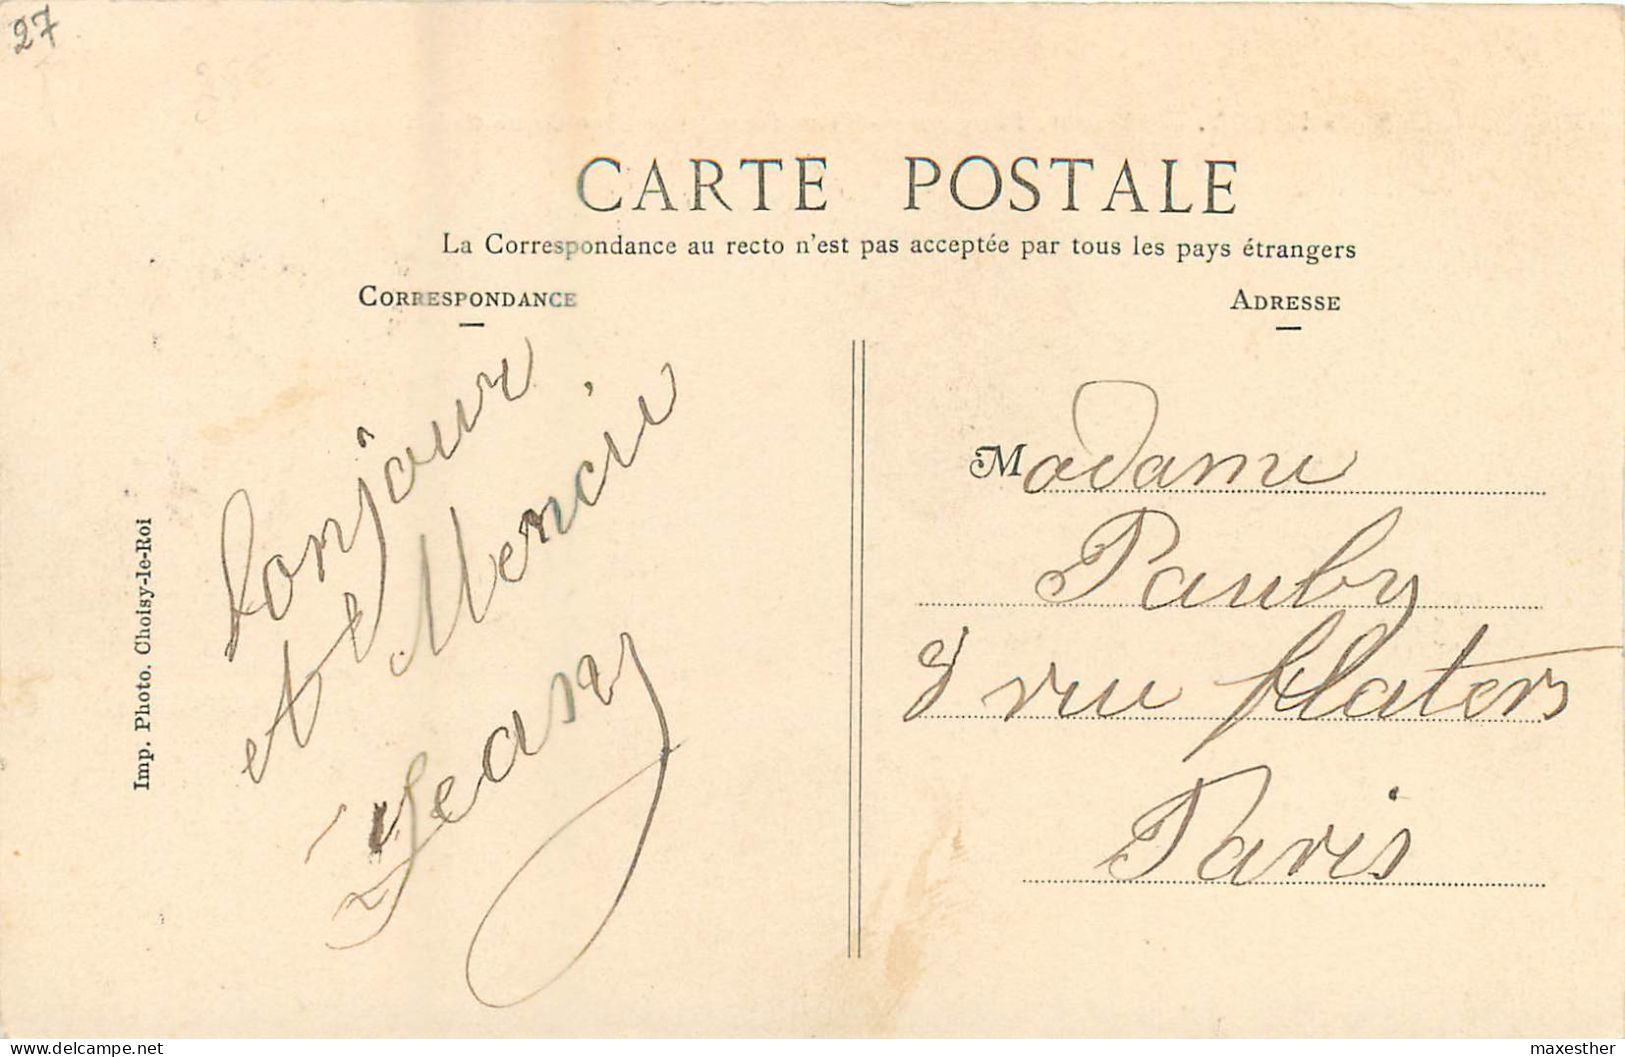 27
CARTE POSTALE
La Correspondance au recto n'est pas acceptée par tous les pays étrangers
CORRESPONDANCE
ADRESSE
bonjour
et Merci
Jeany
Imp. Photo. Choisy-le-Roi
Madame
Pauby
8 rue flaters
Paris
www.delcampe.net
maxesther